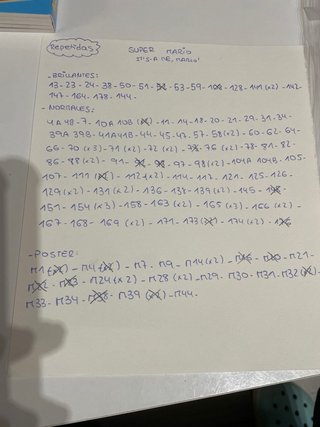 Repetidas
SUPER MARIO
IT'S-A ME, MARIO!
-BRILLANTES:
13-23-24-38-50-51-53-59-128-141 (x2)-142-
147-164-178-144-
-NORMALES:
4A 4B-7-10A 10B-11-14-18-20-21-29-31-34-
39A 39B-41A 41B-44-45-47-57-58 (x2)-60-62-64-
66-70 (x3)-71 (x2)-72 (x2)-76 (x2)-78-81-82-
86-88 (x2)-91-97-98 (x2)-101A 101B-105-
107-111-112 (x2)-114-117-121-125-126-
129 (x2)-131 (x2)-136-138-139 (x2)-145-
151-154 (x3)-158-163 (x2)-165 (x3)-166 (x2)-
167-168-169 (x2)-171-173-174 (x2)-
-POSTER:
M1-M4-M7-M9-M14 (x2)-M21-
M24 (x2)-M28 (x2)-M29-M30-M31-M32-
M33-M34-M39-M44-